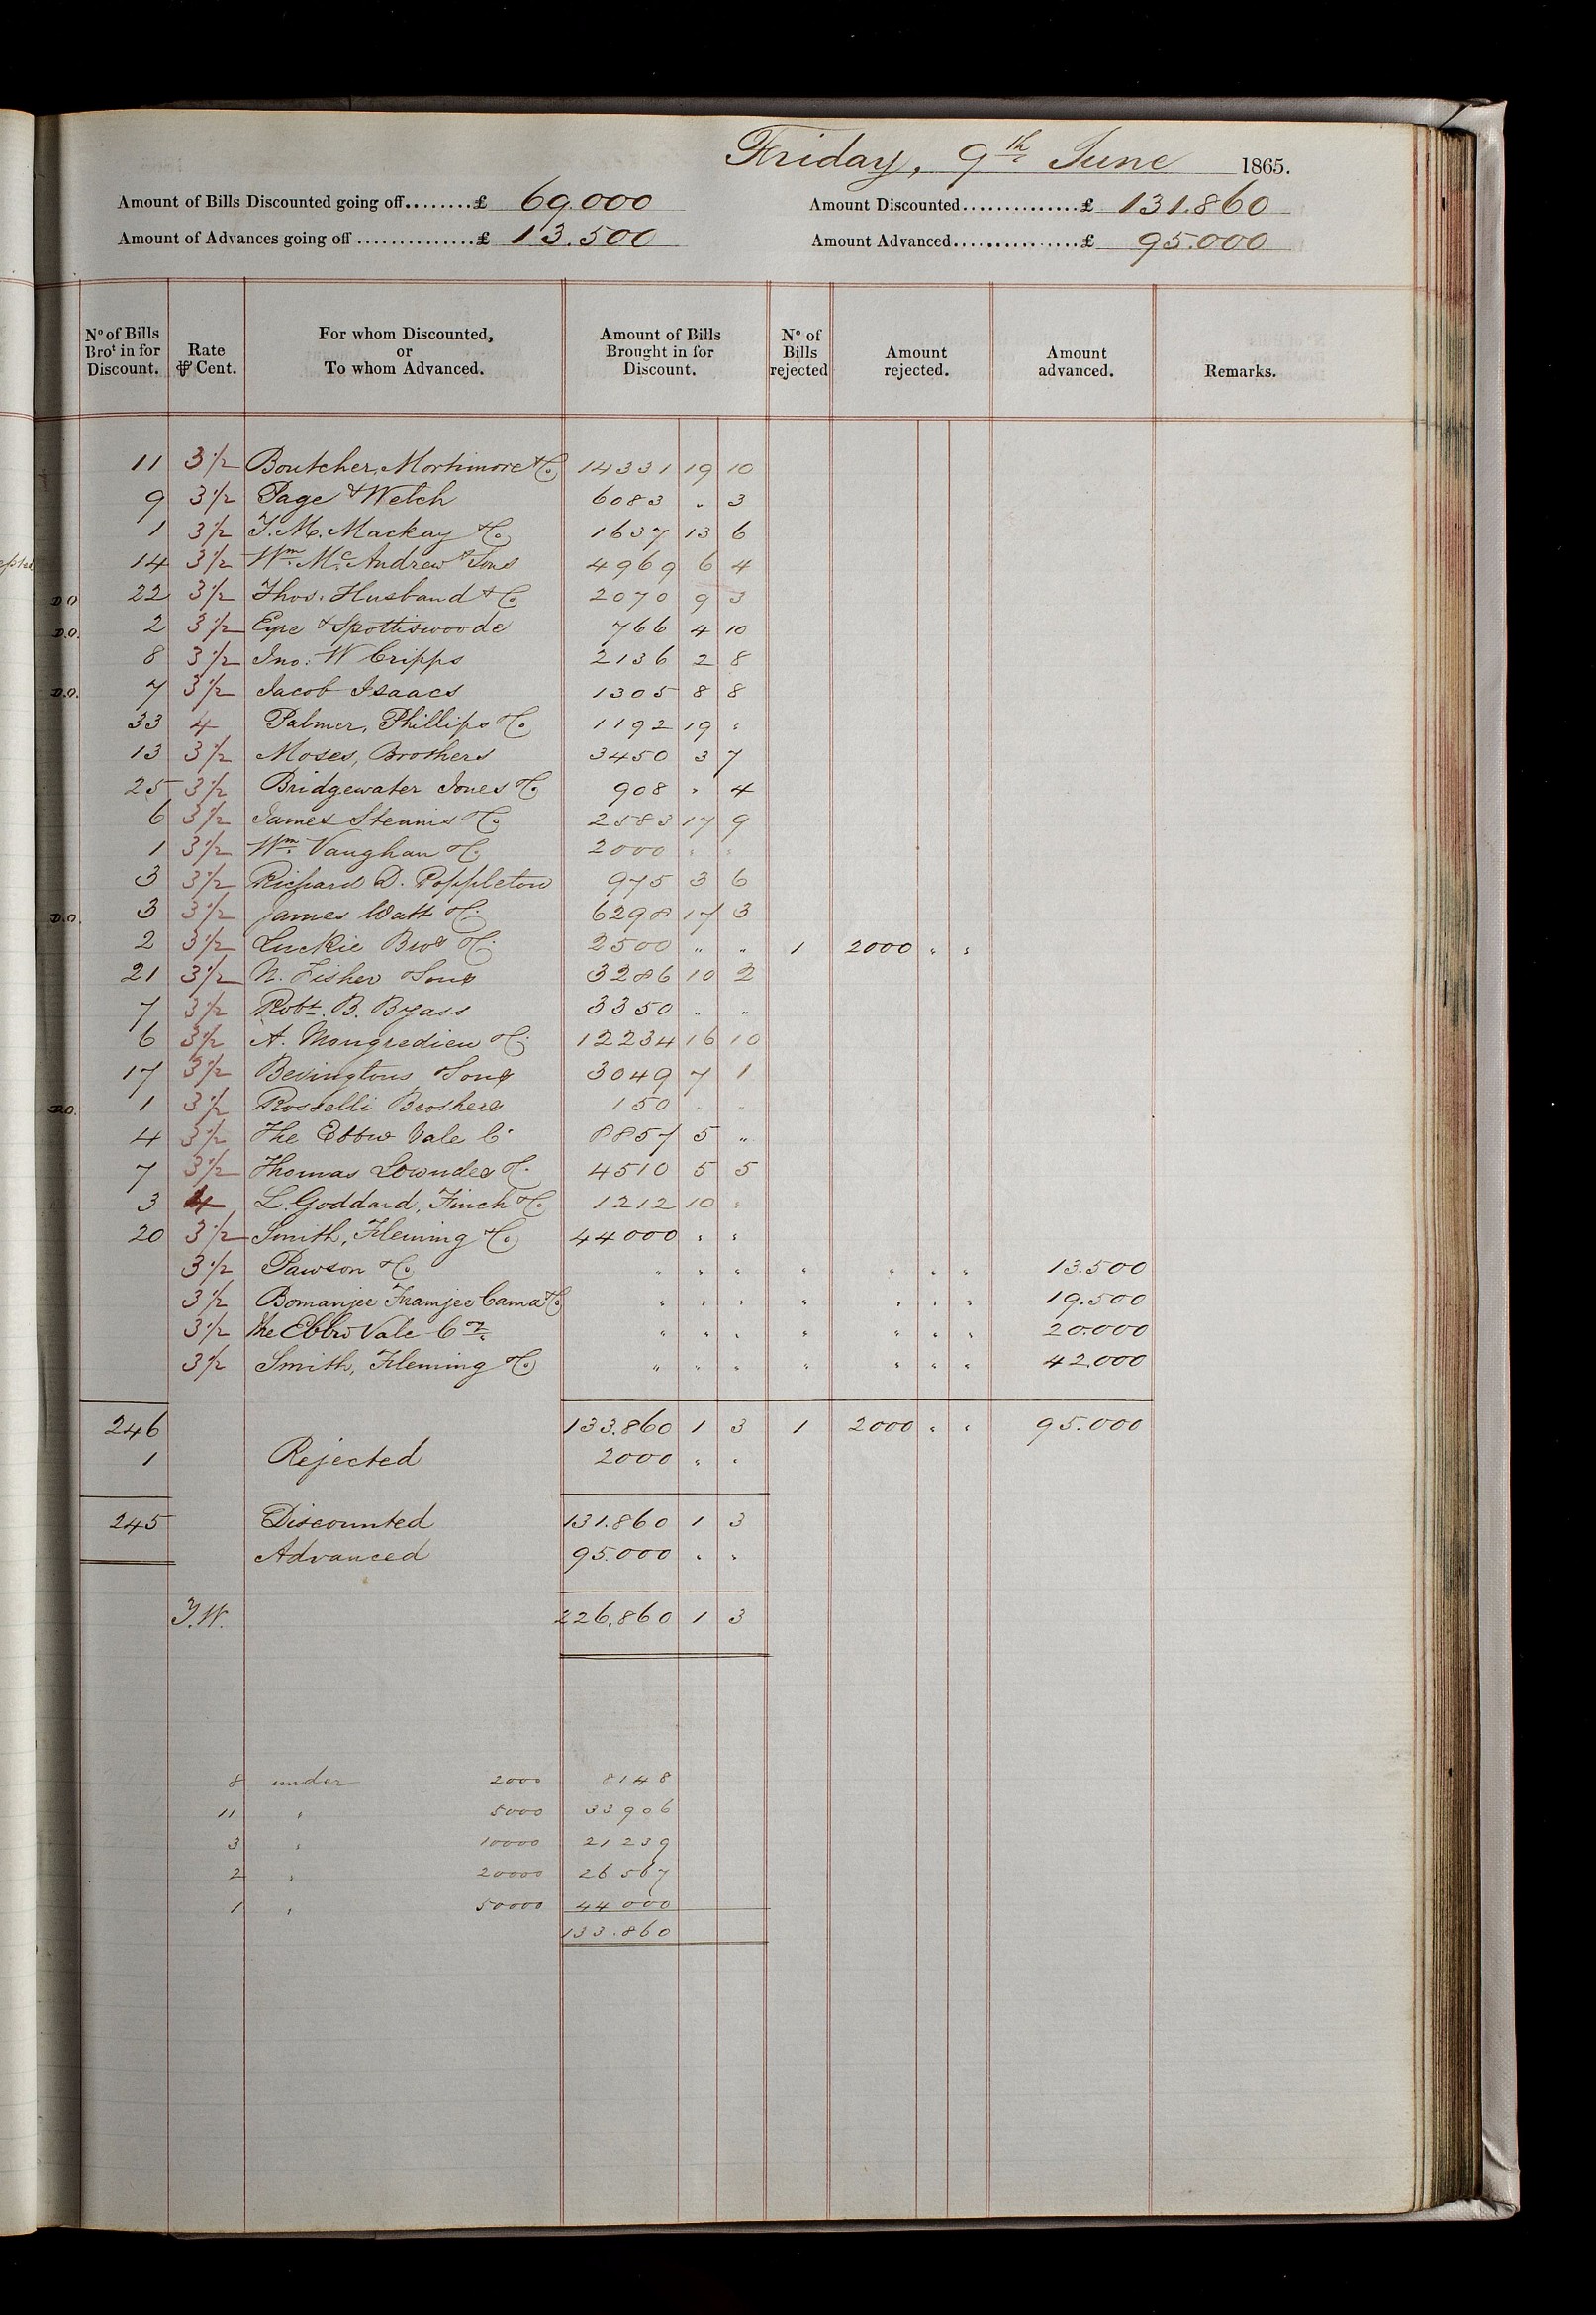 Friday, 9th June 1865.
Amount of Bills Discounted going off........£ 69.000 Amount Discounted..............£ 131.860
Amount of Advances going off..............£ 13.500 Amount Advanced...............£ 95.000
No of Bills Brot in for Discount. Rate ⅌ Cent. For whom Discounted, or To whom Advanced. Amount of Bills Brought in for Discount. No of Bills rejected Amount rejected. Amount advanced. Remarks.
11 3 1/2 Boutcher, Mortimore & Co 14331 19 10
9 3 1/2 Page & Welch 6083 " 3
1 3 1/2 T. M. Mackay & Co 1637 13 6
14 3 1/2 Wm McAndrew & Sons 4969 6 4
DO 22 3 1/2 Thos. Husband & Co 2070 9 3
D.O. 2 3 1/2 Eyre & Spottiswoode 766 4 10
8 3 1/2 Jno. W Cripps 2136 2 8
D.O. 7 3 1/2 Jacob Isaacs 1305 8 8
33 4 Palmer, Phillips & Co 1192 19 "
13 3 1/2 Moses, Brothers 3450 3 7
25 3 1/2 Bridgewater Jones & Co 908 " 4
6 3 1/2 James Steains & Co 2583 17 9
1 3 1/2 Wm Vaughan & Co 2000 " "
3 3 1/2 Richard D. Poppleton 975 3 6
D.O. 3 3 1/2 James Watt & Co 6298 17 3
2 3 1/2 Luckie Bros & Co 2500 " " 1 2000 " "
21 3 1/2 N. Fisher & Sons 3286 10 2
7 3 1/2 Robt. B. Byass 3350 " "
6 3 1/2 A. Mongredien & Co 12234 16 10
17 3 1/2 Bevingtons & Sons 3049 7 1
D.O. 1 3 1/2 Rosselli Brothers 150 " "
4 3 1/2 The Ebbw Vale Co 8857 5 "
7 3 1/2 Thomas Lowndes & Co 4510 5 5
3 4 L. Goddard, Finch & Co 1212 10 "
20 3 1/2 Smith, Fleming & Co 44000 " "
3 1/2 Pawson & Co " " " " " " " 13.500
3 1/2 Bomanjee Framjee Cama & Co " " " " " " " 19.500
3 1/2 The Ebbw Vale Coy " " " " " " " 20.000
3 1/2 Smith, Fleming & Co " " " " " " " 42.000
246 133.860 1 3 1 2000 " " 95.000
1 Rejected 2000 " "
245 Discounted 131.860 1 3
Advanced 95.000 " "
T.W. 226.860 1 3
8 under 2000 8148
11 " 5000 33906
3 " 10000 21239
2 " 20000 26567
1 " 50000 44000
133.860